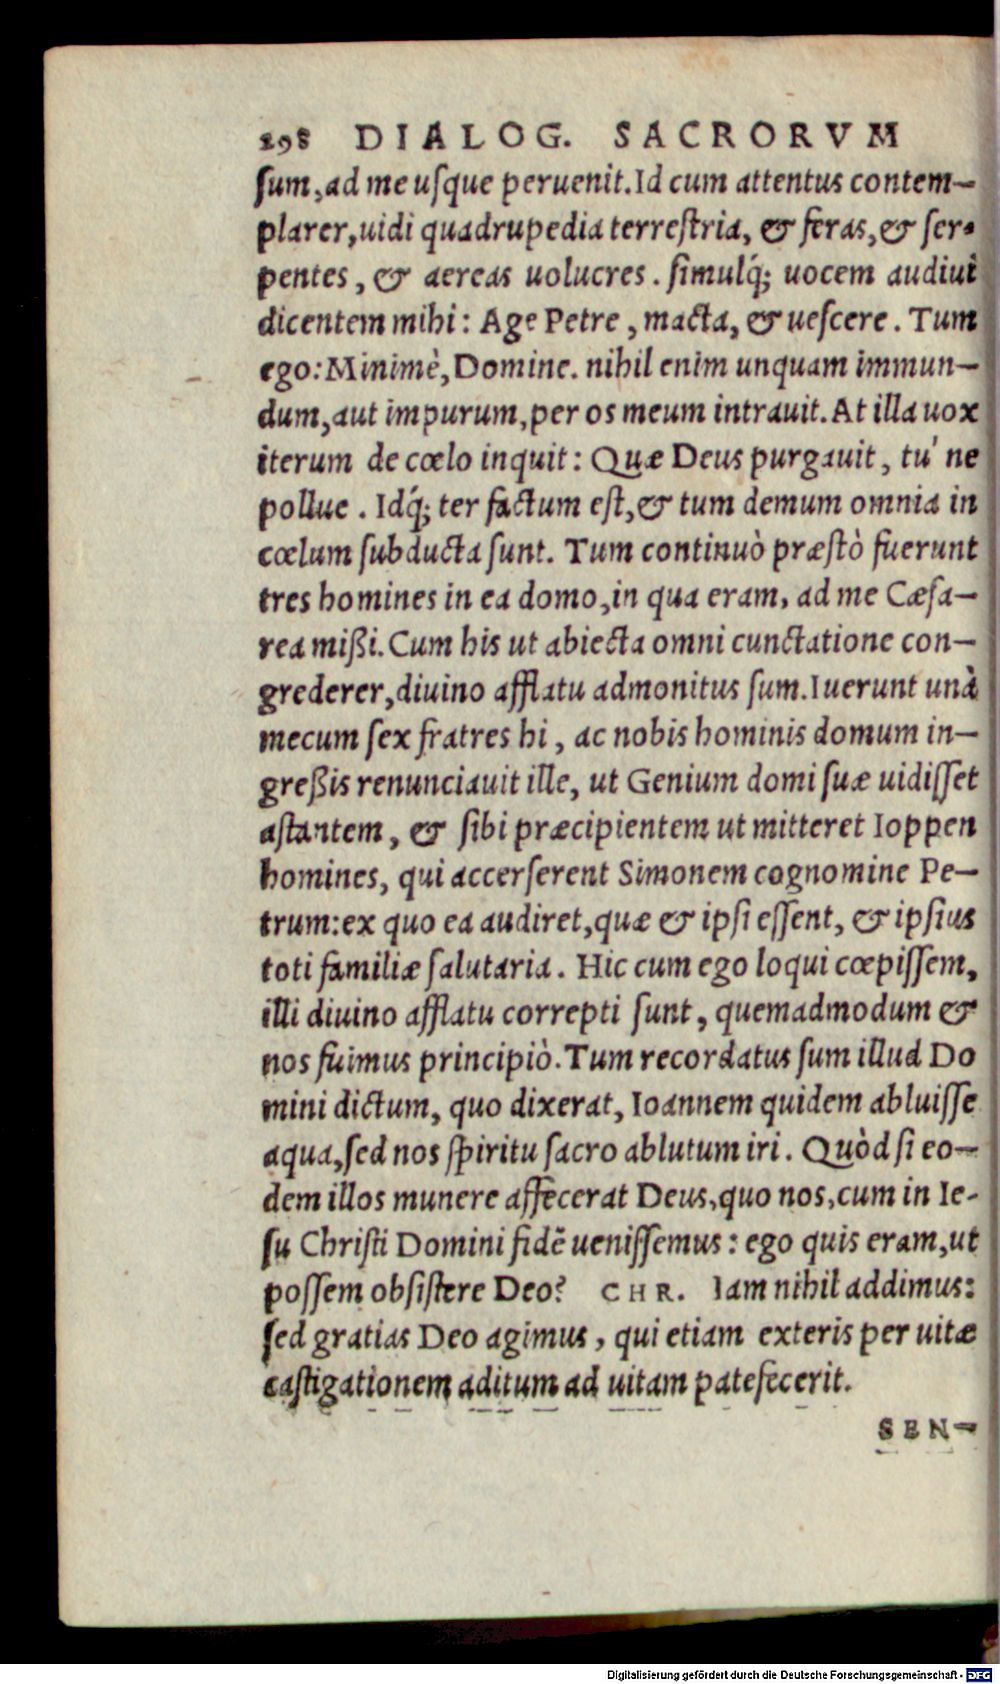 298 DIALOG. SACRORVM
sum, ad me usque peruenit. Id cum attentus contem-
plarer, uidi quadrupedia terrestria, & feras, & ser-
pentes, & aereas uolucres. simulq́; uocem audiui
dicentem mihi: Age Petre, macta, & uescere. Tum
ego: Minimè, Domine. nihil enim unquam immun-
dum, aut impurum, per os meum intrauit. At illa uox
iterum de cœlo inquit: Quæ Deus purgauit, tú ne
pollue. Idq́; ter factum est, & tum demum omnia in
cœlum subducta sunt. Tum continuò præstò fuerunt
tres homines in ea domo, in qua eram, ad me Cæsa-
rea mißi. Cum his ut abiecta omni cunctatione con-
grederer, diuino afflatu admonitus sum. Iuerunt unà
mecum sex fratres hi, ac nobis hominis domum in-
greßis renunciauit ille, ut Genium domi suæ uidisset
astantem, & sibi præcipientem ut mitteret Ioppen
homines, qui accerserent Simonem cognomine Pe-
trum: ex quo ea audiret, quæ & ipsi essent, & ipsius
toti familiæ salutaria. Hic cum ego loqui cœpissem,
illi diuino afflatu correpti sunt, quemadmodum &
nos fuimus principiò. Tum recordatus sum illud Do
mini dictum, quo dixerat, Ioannem quidem abluisse
aqua, sed nos spiritu sacro ablutum iri. Quòd si eo-
dem illos munere affecerat Deus, quo nos, cum in Ie-
su Christi Domini fidẽ uenissemus: ego quis eram, ut
possem obsistere Deo? CHR. Iam nihil addimus:
sed gratias Deo agimus, qui etiam exteris per uitæ
castigationem aditum ad uitam patefecerit.
SEN-
Digitalisierung gefördert durch die Deutsche Forschungsgemeinschaft - DFG